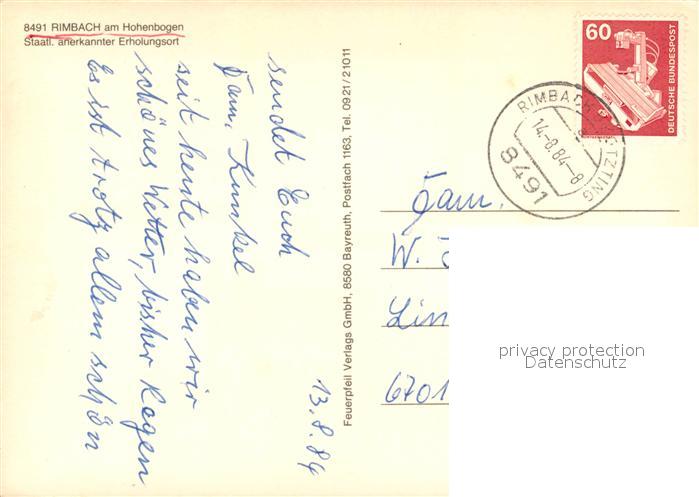 8491 RIMBACH am Hohenbogen
Staatl. anerkannter Erholungsort
sendet Euch
Fam. Kunkel
seit heute haben wir
schönes Wetter, bisher Regen
Es ist trotz allem schön
13.8.84
Feuerpfeil Verlags GmbH, 8580 Bayreuth, Postfach 1163, Tel. 0921/21011
60
DEUTSCHE BUNDESPOST
RIMBACH
14.-8.84-8
8491
Fam.
W.
Lin
6701
privacy protection
Datenschutz